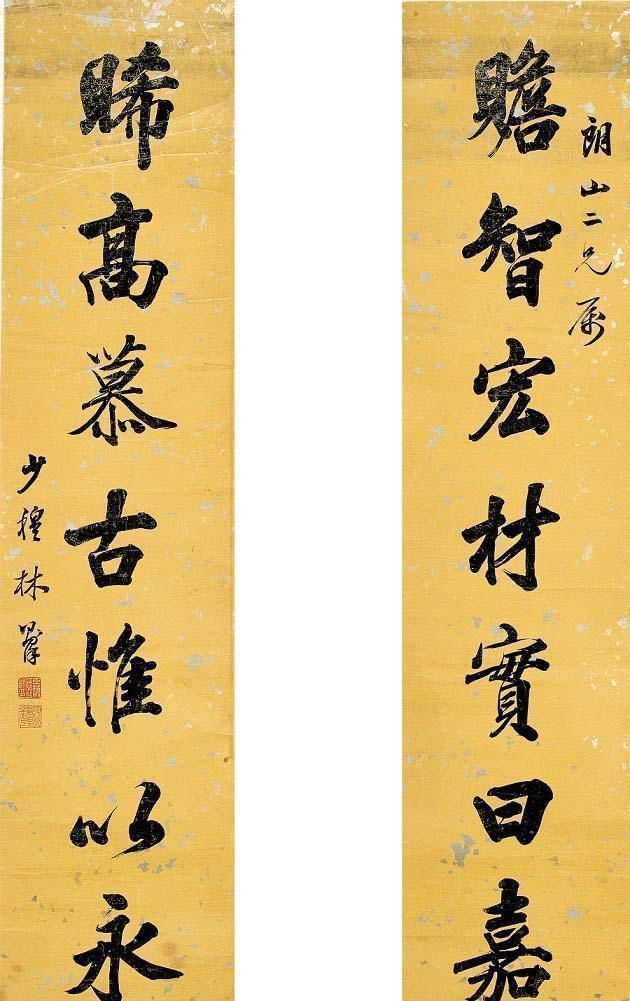 朗山二兄属
贍智宏材實曰嘉
睎高慕古惟以永
少穆林則徐